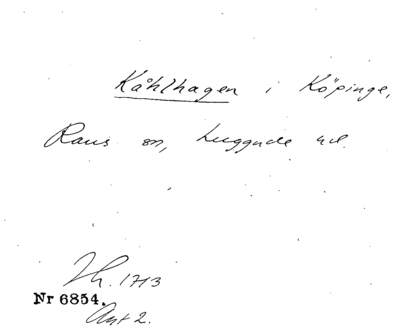 Kåhlhagen i Köpinge,
Raus sn, Luggude hd.
Th. 1713
Nr 6854.
Ant 2.